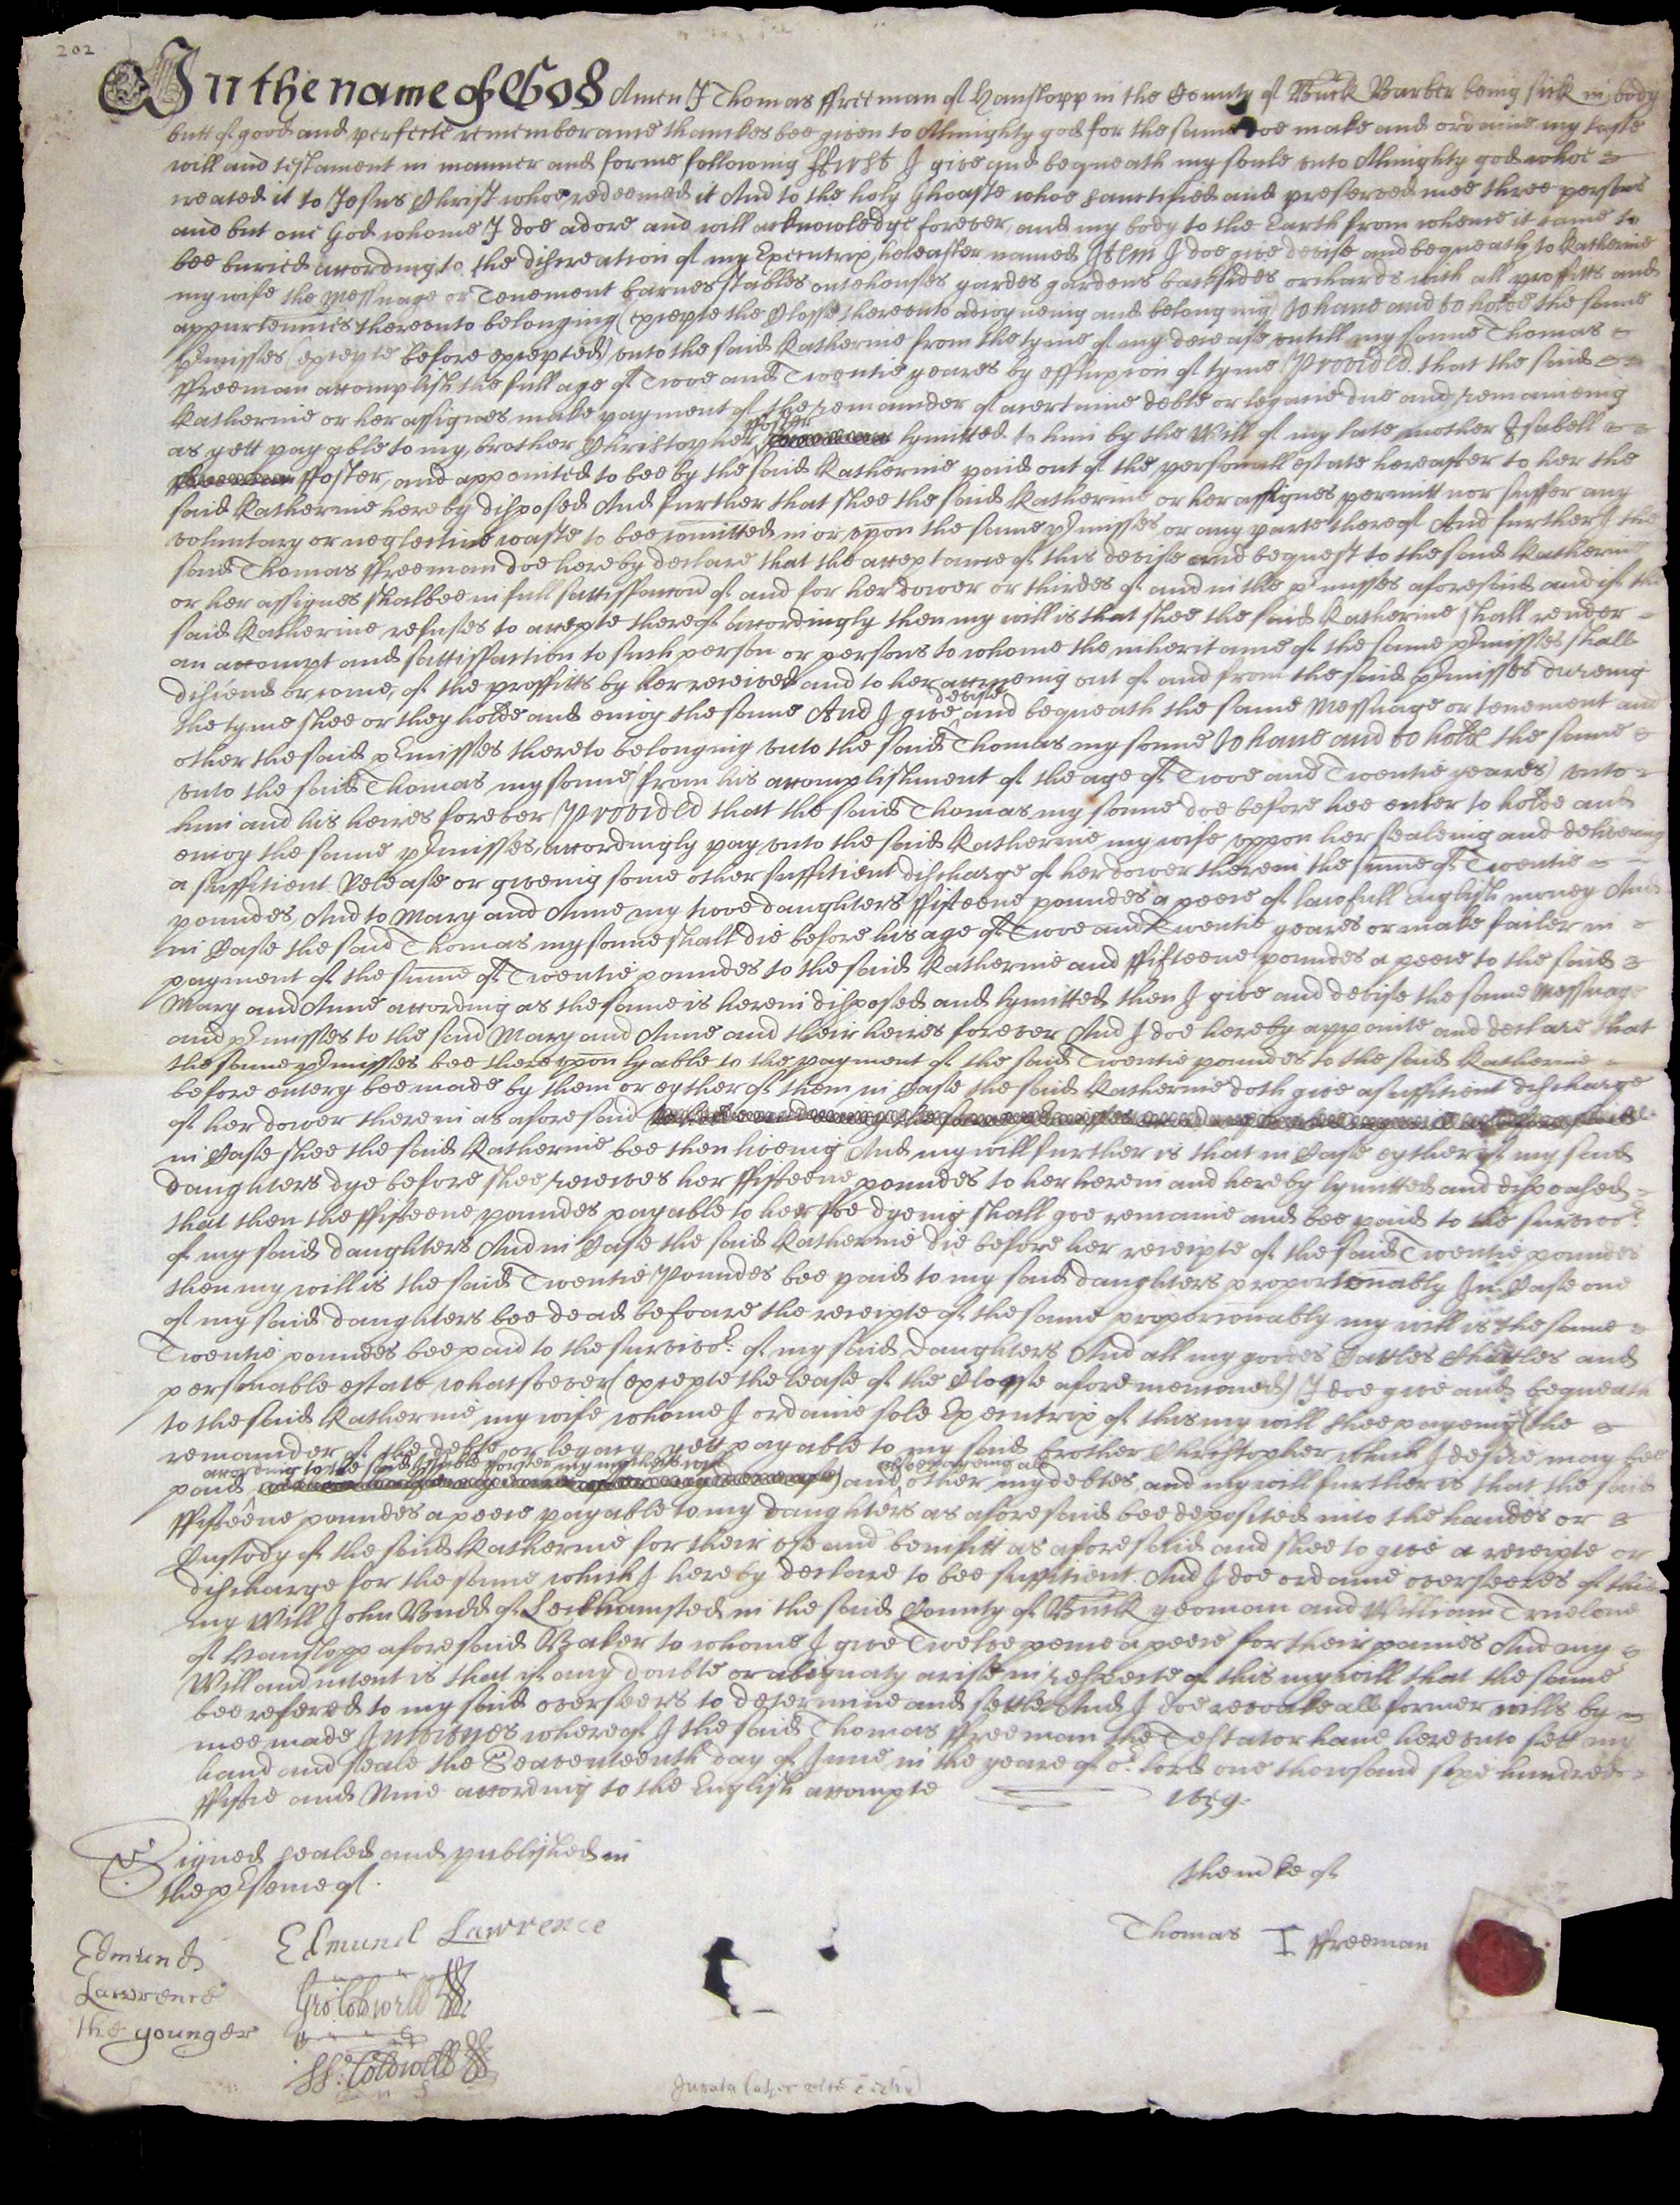 202
In the name of God Amen I Thomas ffreeman of Hanslopp in the County of Buck Barber being sick in body
butt of good and perfecte remembrance thanckes bee given to Almighty god for the same doe make and ordaine my laste
will and testament in manner and forme following ffirst I give and bequeath my soule unto Almighty god whoe
created it to Jesus Christ whoe redeemed it And to the holy Ghoaste whoe sanctified and preserved mee three persons
and but one God whome I doe adore and will acknowledge forever, and my body to the Earth from whence it came to
bee buried according to the discreation of my Executrix hereafter named Item I doe give devise and bequeath to Katherine
my wife the Messuage or Tenement barnes stables outehouses yardes gardens backsides orchards with all proffitts and
appurtennces thereunto belonging (excepte the Closse thereunto adioyneing and belonging) To have and to holde the same
pmisses (excepte before excepted) unto the said Katherine from the tyme of my decease untill my sonne Thomas
ffreeman accomplish the full age of Twoe and Twentie yeares by effluxion of tyme Provided that the said
Katherine or her assignes make payment of the remainder of a certaine debte or legacie due and remaineing
as yett payable to my brother Christopher ffoster lymitted to him by the Will of my late mother Isabell
ffoster, and appointed to bee by the said Katherine paid out of the personall estate hereafter to her the
said Katherine hereby disposed And further that shee the said Katherine or her assignes permitt nor suffer any
voluntary or neglective waste to bee comitted in or upon the same pmisses or any parte thereof And further I the
said Thomas ffreeman doe hereby declare that the acceptance of this devise and bequest to the said Katherine
or her assignes shalbee in full sattisffaccon of and for her dower or thirdes of and in the pmisses aforesaid and if the
said Katherine refuses to accepte thereof accordingly then my will is that shee the said Katherine shall render
an accompt and sattisffaction to such person or persons to whome the inheritance of the same pmisses shall
discend or come, of the proffitts by her received and to her accrueing out of and from the said pmisses dureing
the tyme shee or they holde and enioy the same And I give devise and bequeath the same Messuage or tenement and
other the said pmisses thereto belonging unto the said Thomas my sonne To have and to hold the same
unto the said Thomas my sonne (from his accomplishment of the age of Twoe and Twentie yeares) unto
him and his heires forever Provided that the said Thomas my sonne doe before hee enter to holde and
enioy the same pmisses, accordingly pay unto the said Katherine my wife uppon her sealeing and delivering
a suffitient Release or giveing some other suffitient discharge of her dower therein the summe of Twentie
poundes, And to Mary and Anne my twoe daughters ffifteene poundes a peece of lawfull English money And
in Case the said Thomas my sonne shall die before his age of Twoe and Twentie yeares or make failer in
payment of the summe of Twentie poundes to the said Katherine and ffifteene poundes a peece to the said
Mary and Anne according as the same is herein disposed and lymitted, then I give and devise the same Messuage
and pmisses to the said Mary and Anne and their heires forever And I doe hereby appointe and declare that
the same pmisses bee thereupon lyable to the payment of the said Twentie poundes to the said Katherine
before entery bee made by them or eyther of them, in Case the said Katherine doth give a suffitient discharge
of her dower therein as aforesaid
in Case shee the said Katherine bee then liveing And my will further is that in Case eyther of my said
daughters dye before shee receives her ffifteene poundes to her herein and hereby lymitted and disposed
that then the ffifteene poundes payable to her soe dyeing shall goe remaine and bee paid to the survivor
of my said daughters And in Case the said Katherine die before her receipte of the said Twentie poundes
then my will is the said Twentie Poundes bee paid to my said daughters proportionably In Case one
of my said daughters bee dead befoare the receipte of the same proporconably my will is the same
Twentie poundes bee paid to the survivor of my said daughters And all my goodes Cattles Chattles and
personable estate whatsoever (excepte the lease of the Closse aforemenconed) I doe give and bequeath
to the said Katherine my wife whome I ordaine sole Executrix of this my will shee payeing the
remainder of the debte or legacy yett payable to my said brother Christopher, which I desire may bee
paid according to the said Isabell ffoster my mothers will and shee payeing all other my debtes, and my will further is that the said
ffifteene poundes a peece payable to my daughters as aforesaid bee deposited into the handes or
Custody of the said Katherine for their use and benifitt as aforesaid and shee to give a receipte or
discharge for the same which I hereby declare to bee suffitient. And I doe ordaine overseeres of this
my Will John Budd of Leckhamsted in the said County of Buck yeoman and William Truelove
of Hanslopp aforesaid Baker to whome I give Twelve pence a peece for their paines And my
Will and intent is that if any double or abiguaty arise in respecte of this my will that the same
bee refered to my said overseers to determine and settle And I doe revoake all former wills by
mee made In witnes whereof I the said Thomas ffreeman the Testator have hereunto sett my
hand and seale the Seaventeenth day of June in the yeare of or Lord one thowsand sixe hundred
ffiftie and Nine according to the English accompte 1659.
Signed sealed and published in
the psence of
the mke of
Thomas I ffreeman
Edmund
Lawrence
the younger
Edmund Lawrence
Geo: Coldwell
ff: Coldwell